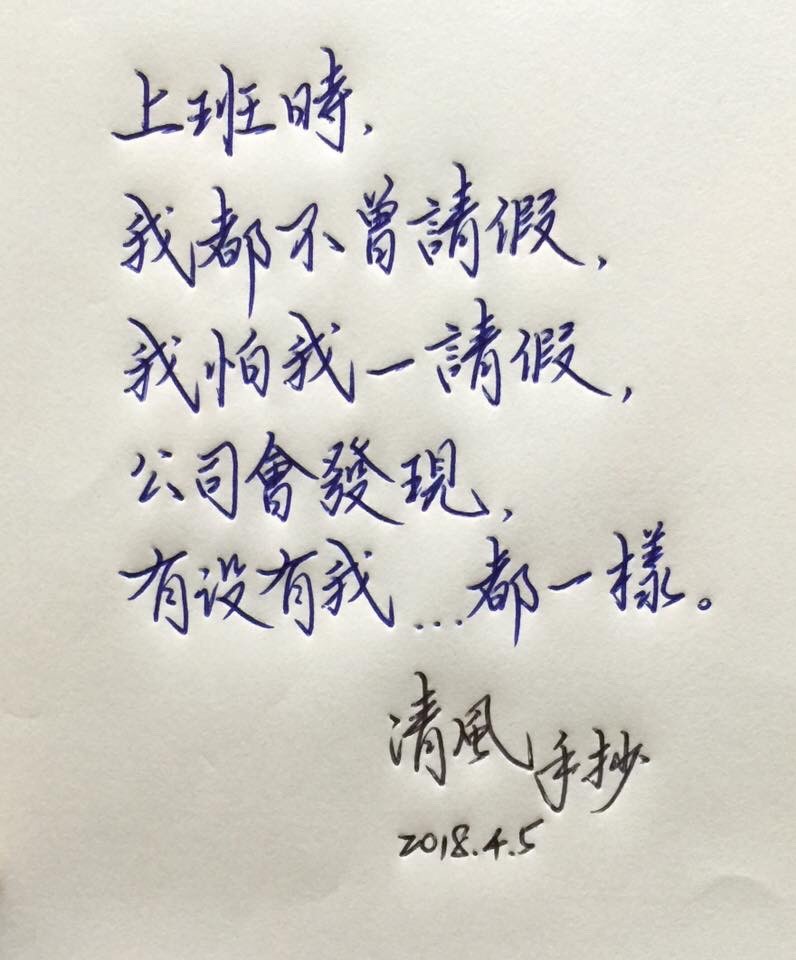 上班時,
我都不曾請假,
我怕我一請假,
公司會發現,
有沒有我...都一樣。
清風手抄
2018.4.5